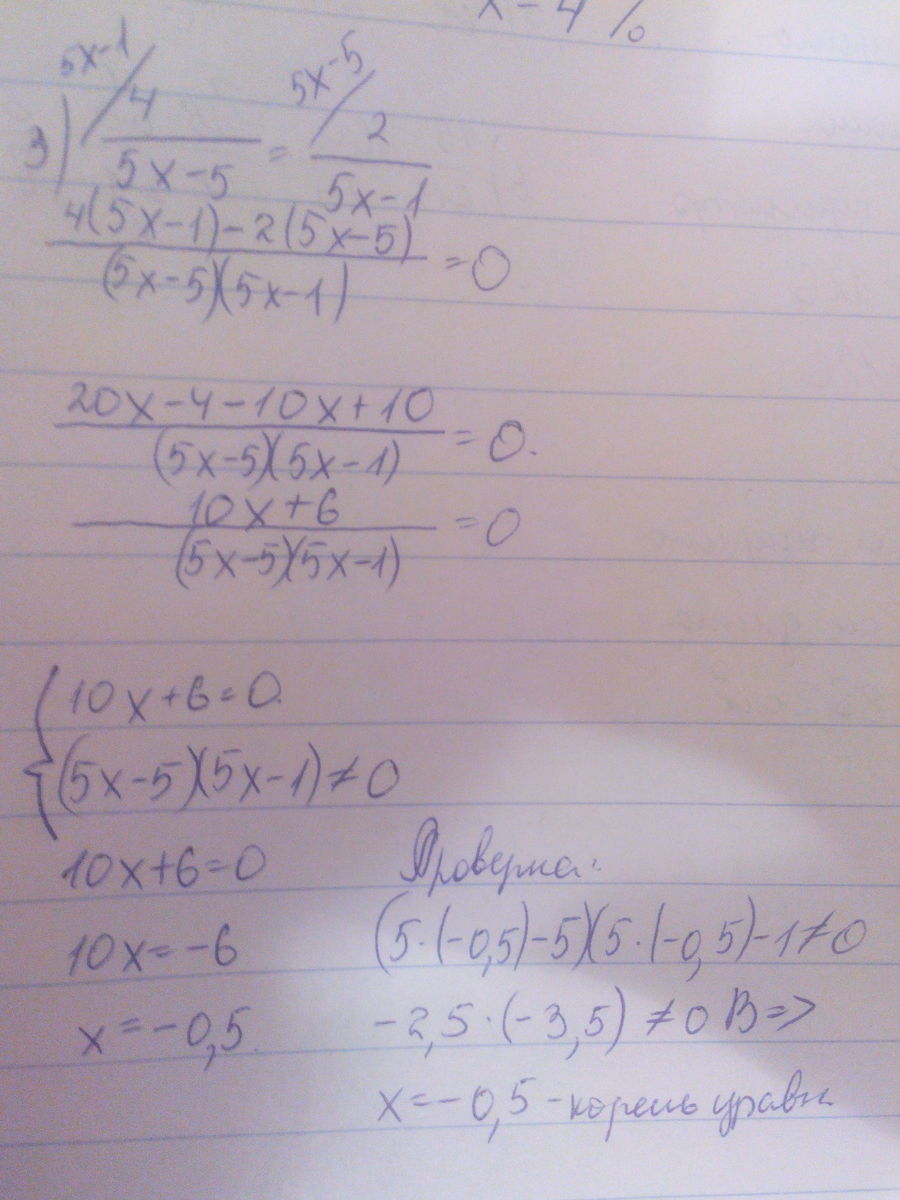 x-4%
5x-1 5x-5
3) 4/(5x-5) = 2/(5x-1)
(4(5x-1)-2(5x-5))/((5x-5)(5x-1)) =0
(20x-4-10x+10)/((5x-5)(5x-1)) =0.
(10x+6)/((5x-5)(5x-1)) =0
{10x+6=0.
(5x-5)(5x-1)≠0
10x+6=0
10x=-6
x=-0,5.
Проверка:
(5·(-0,5)-5)(5·(-0,5)-1≠0
-2,5·(-3,5)≠0 В=>
x=-0,5-корень уравн.